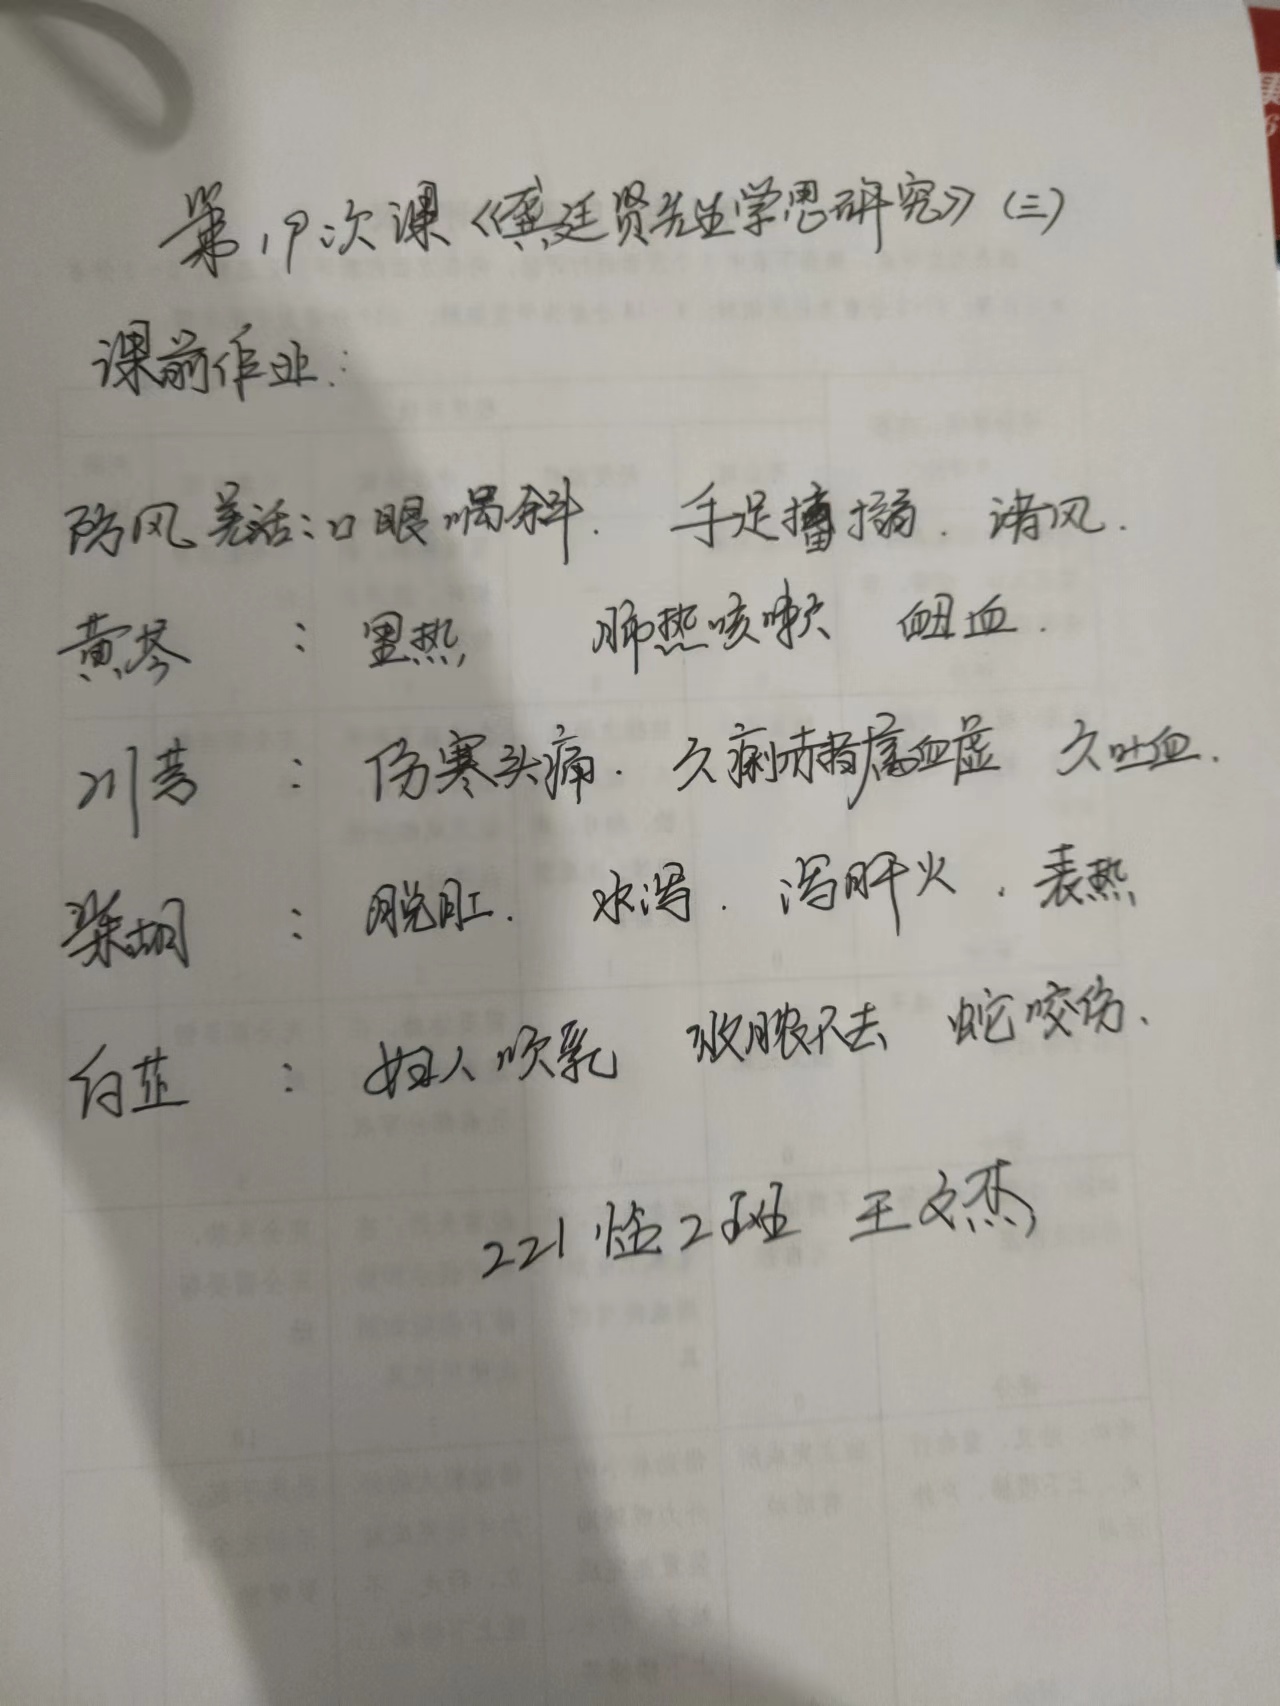 第19次课《龚廷贤先生学思研究》(三)
课前作业:
防风羌活:口眼喎斜. 手足搐搦. 诸风.
黄芩 : 里热 肺热咳嗽 衄血.
川芎 : 伤寒头痛. 久痢赤者属血虚 久吐血.
柴胡 : 脱肛. 水泻. 泻肝火. 表热
白芷 : 妇人吹乳 败脓不去 蛇咬伤.
221临2班 王文杰